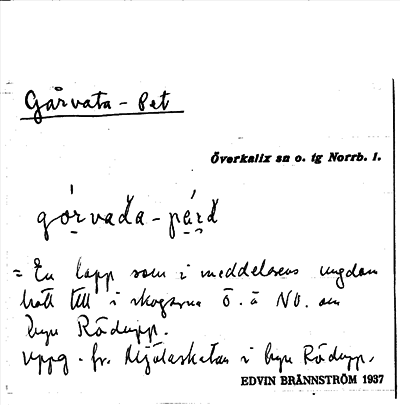 Gårvata-Pet
Överkalix sn o. tg Norrb. l.
go̱rvada-pä̱ṛd
= En lapp som i meddelarens ungdom
höll till i skogarna Ö. å NO. om
byn Rödupp.
uppg. fr. Mjölaskatan i byn Rödupp.
EDVIN BRÄNNSTRÖM 1937